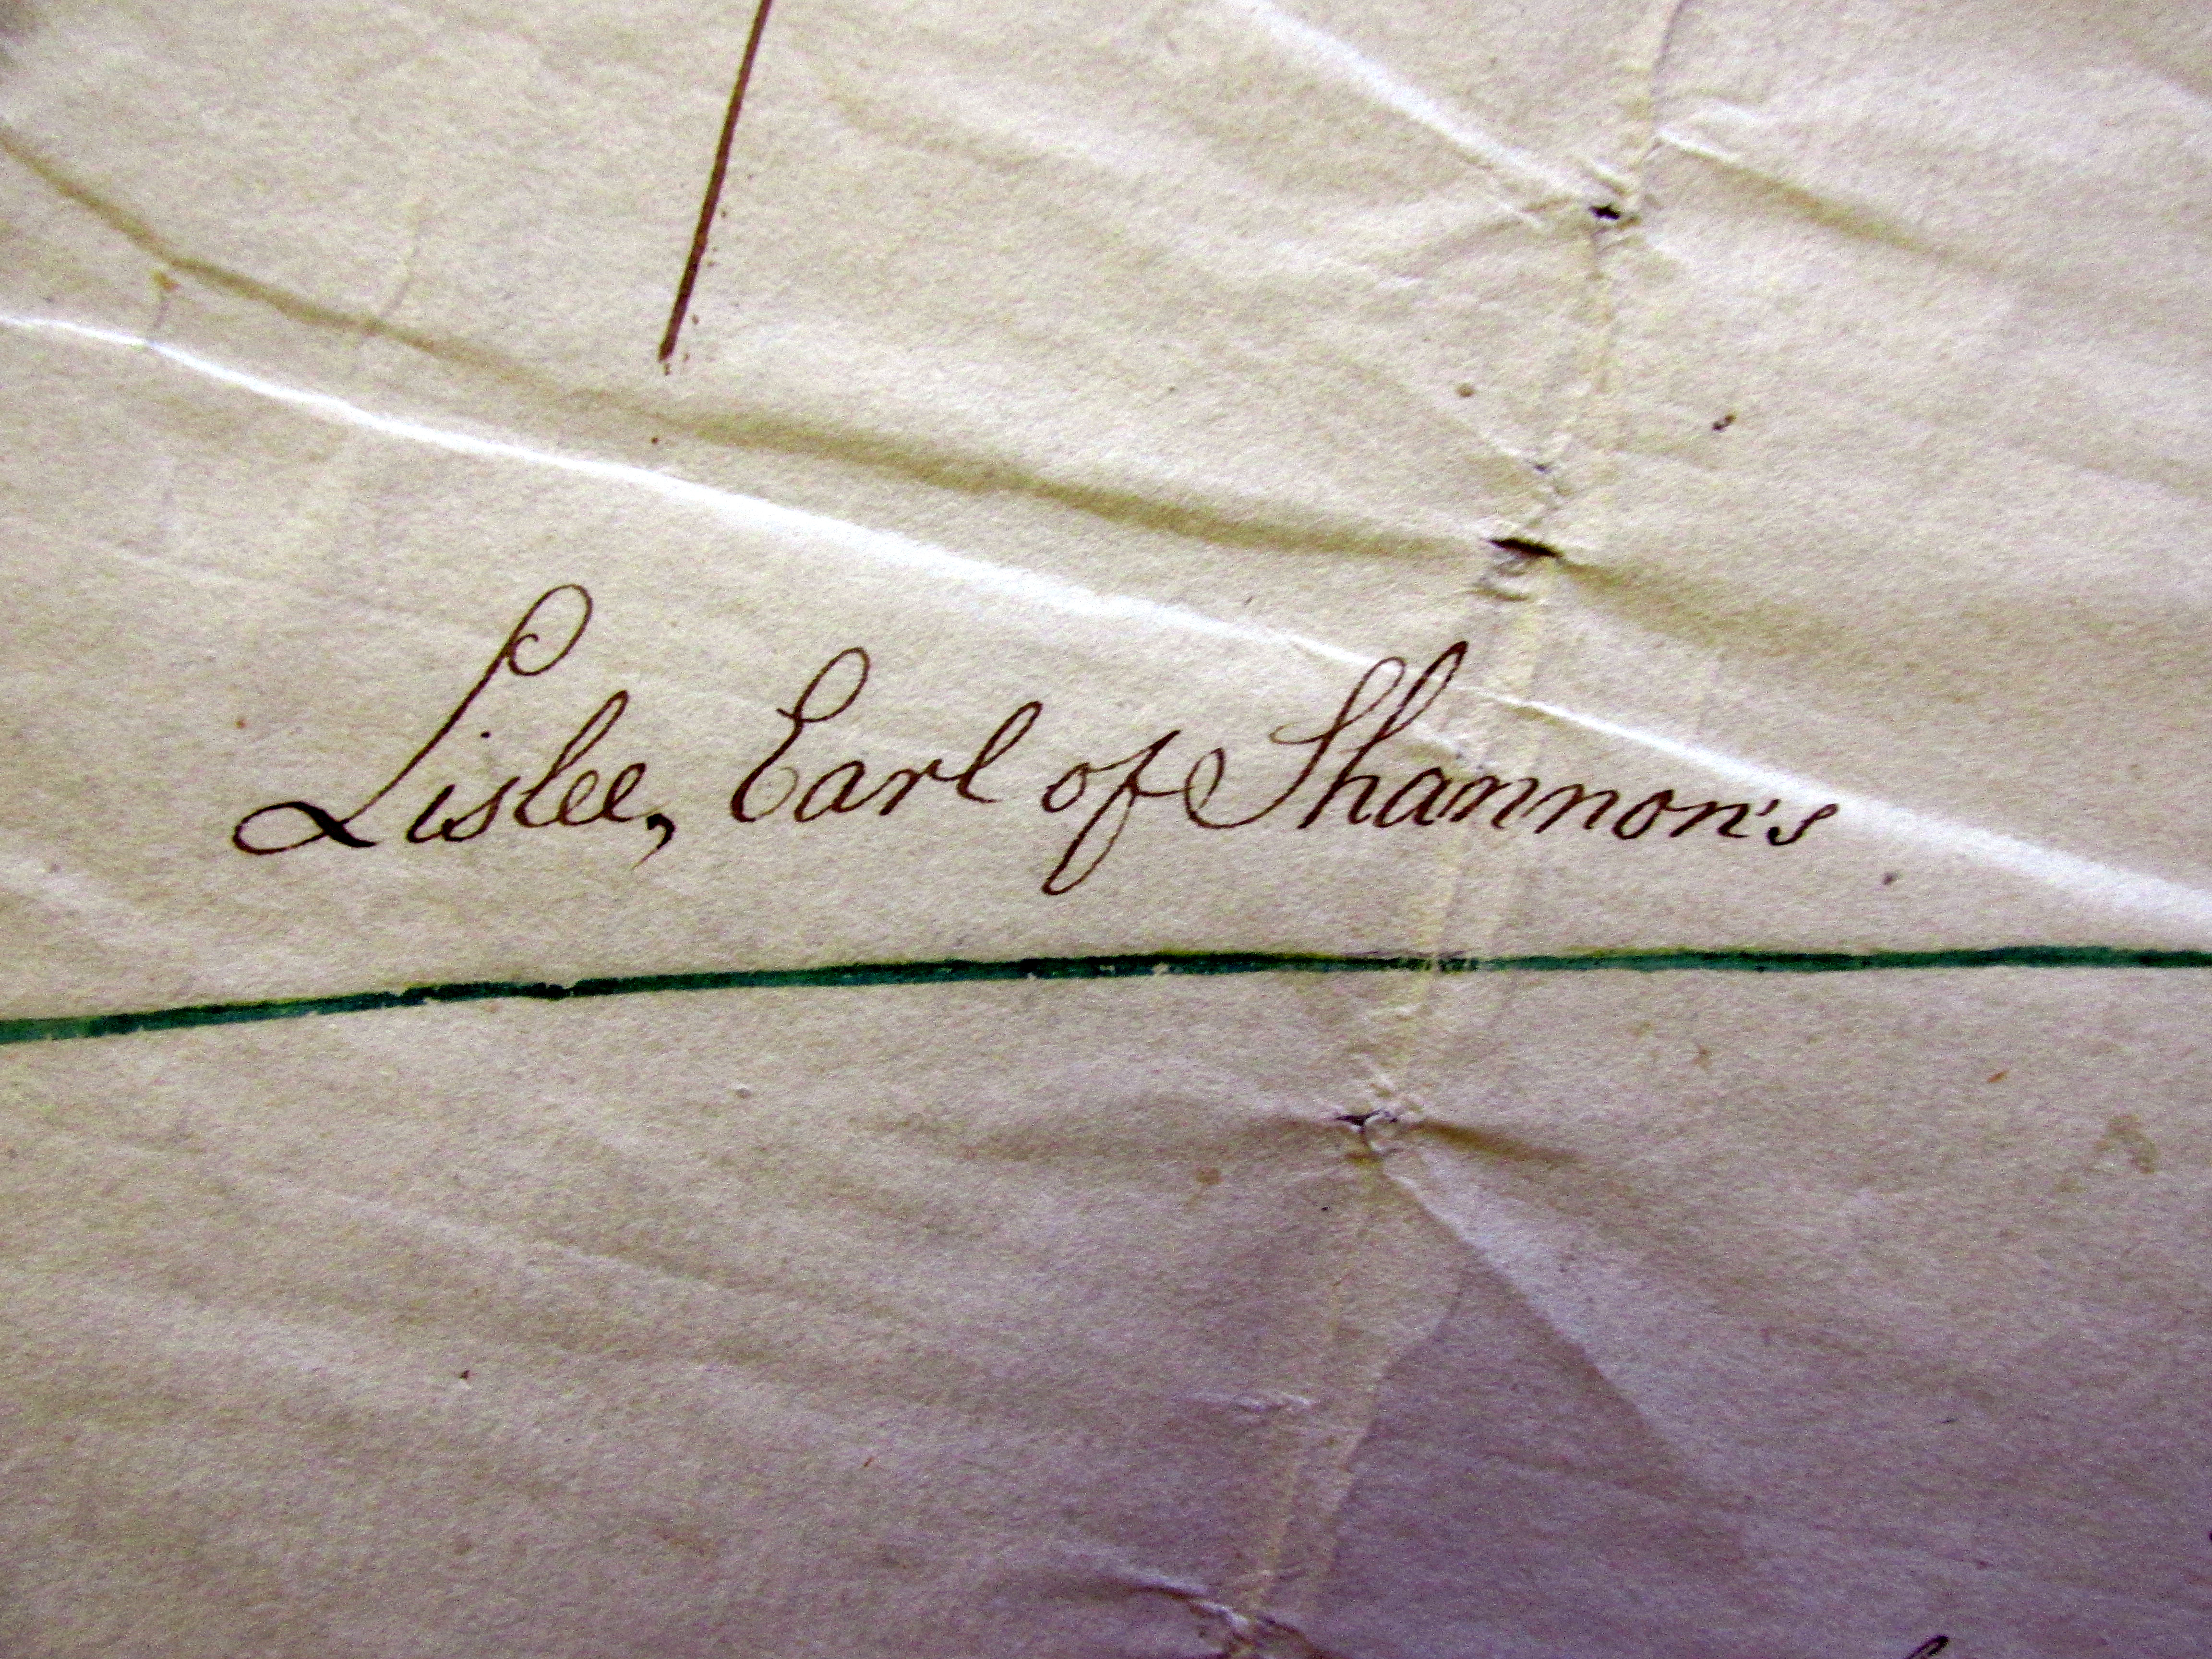 Lislee, Earl of Shannon's